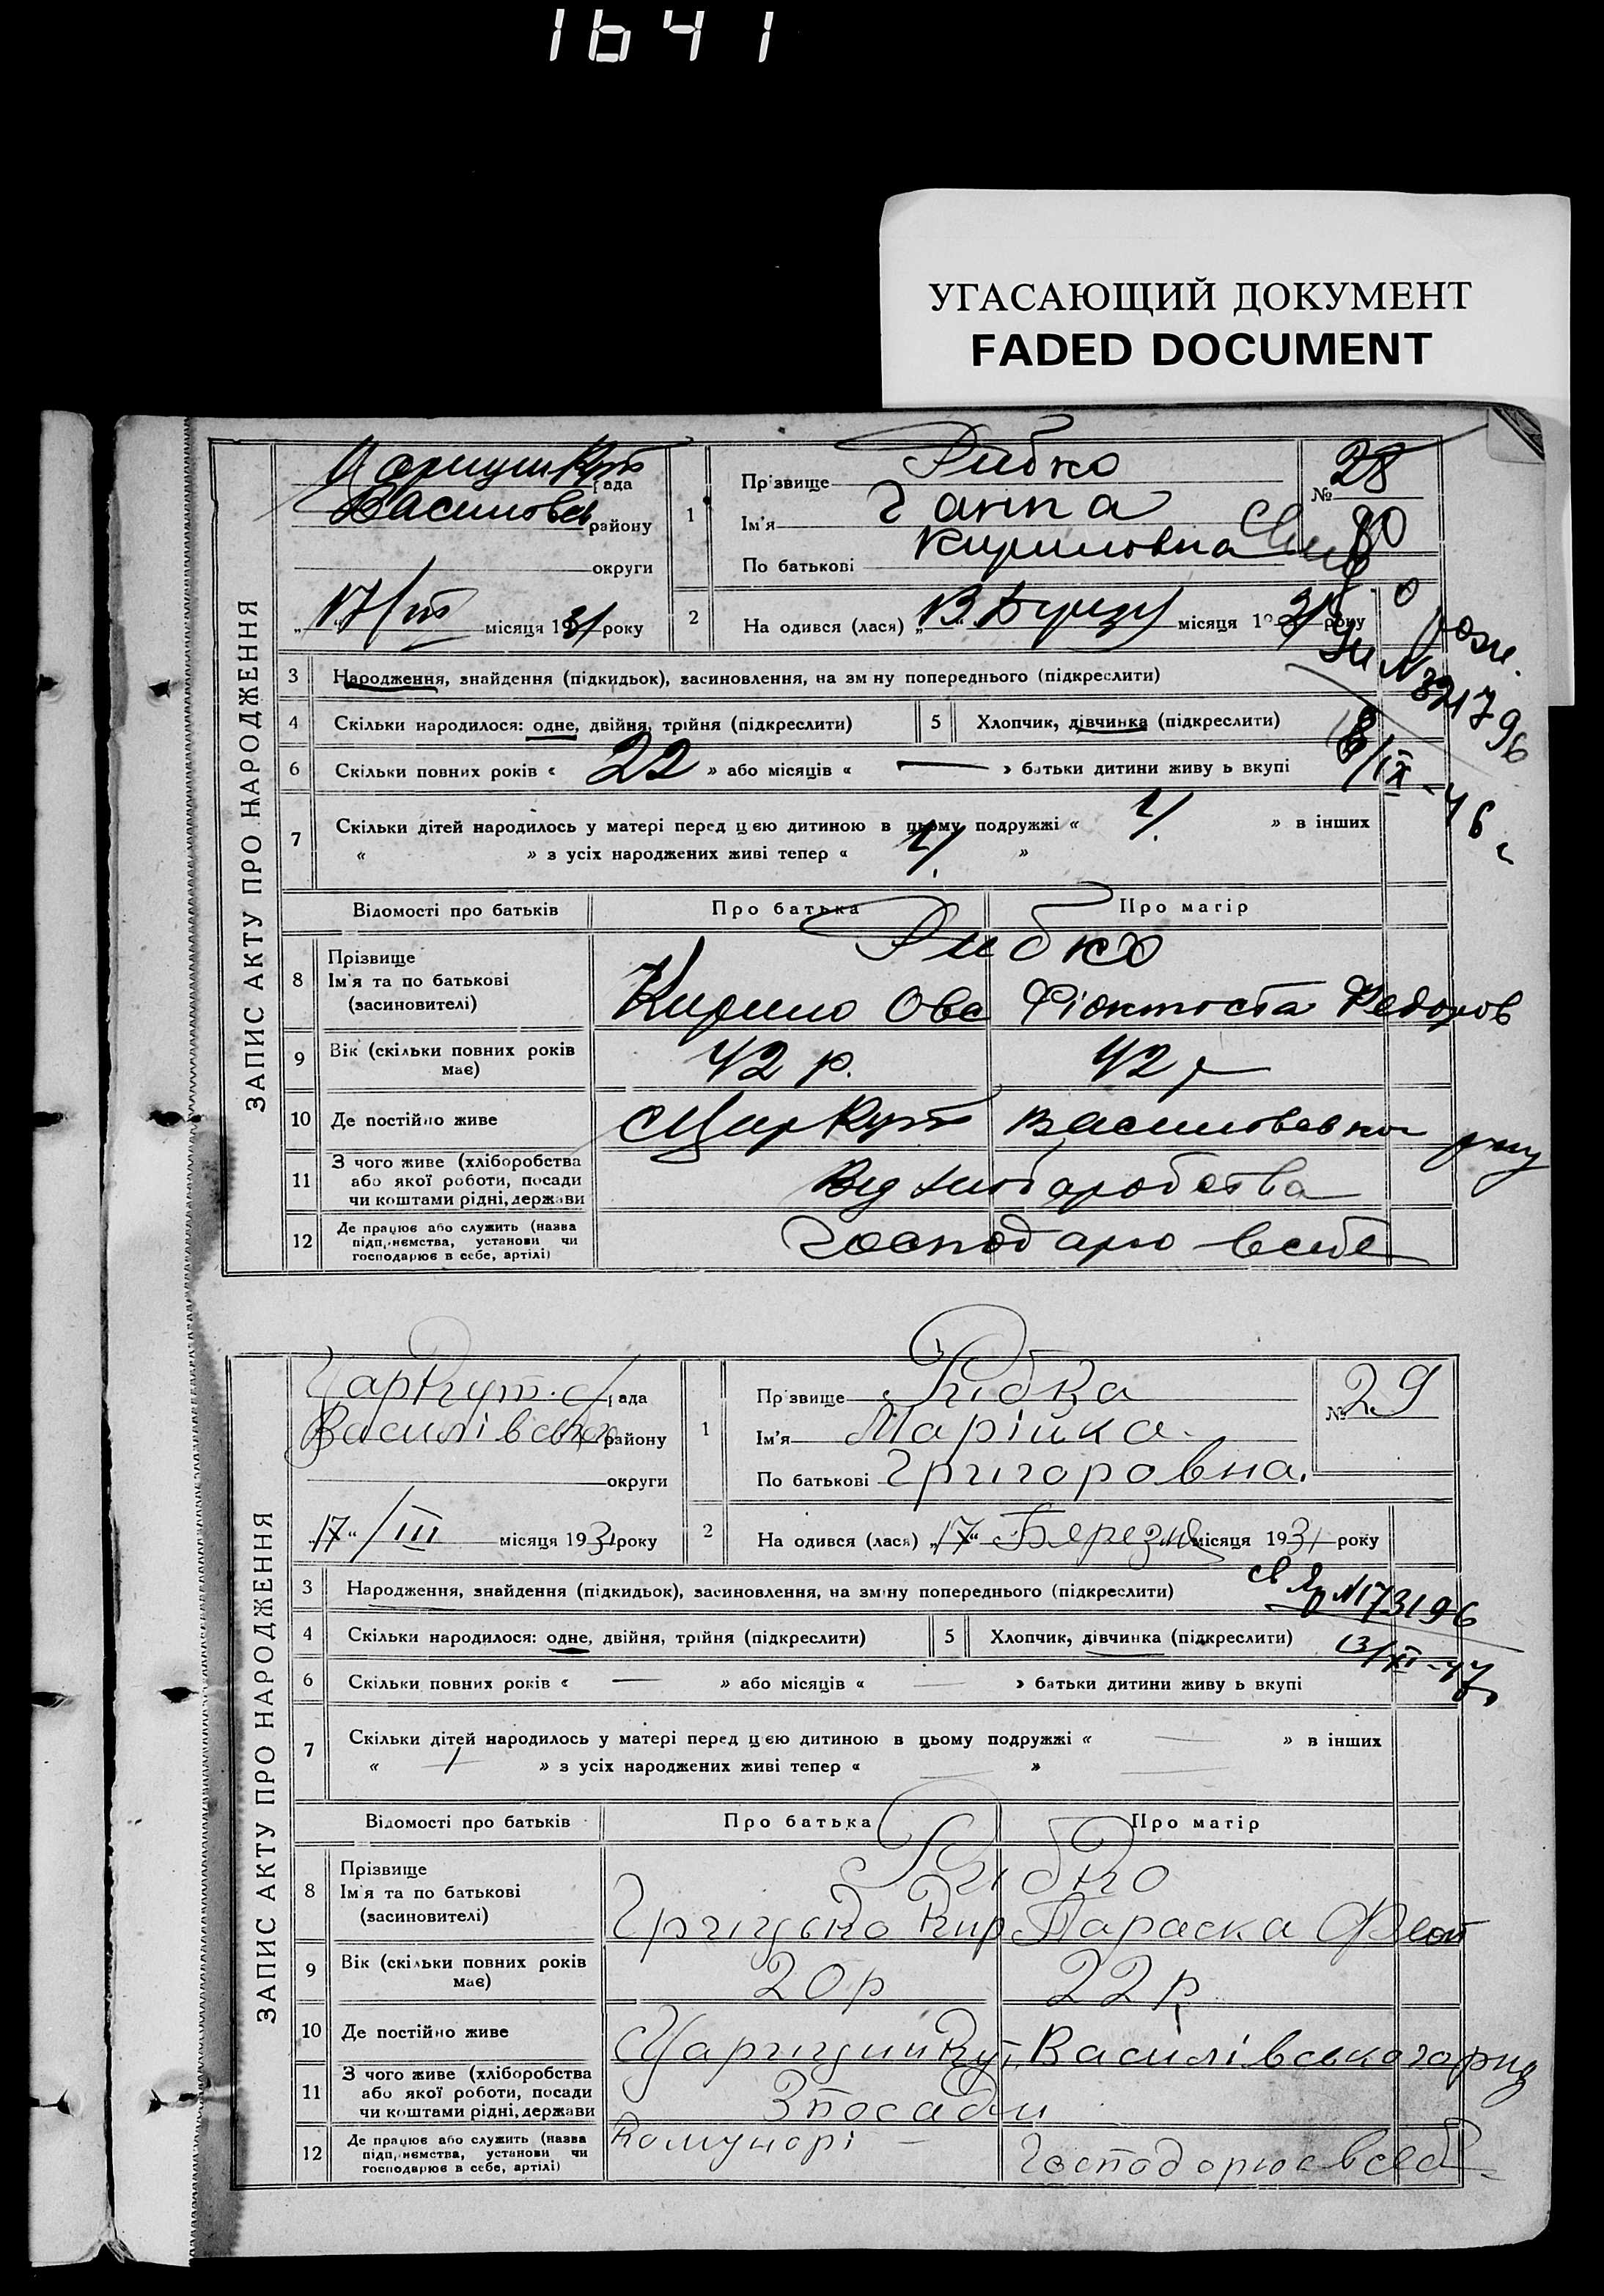 1641
УГАСАЮЩИЙ ДОКУМЕНТ
FADED DOCUMENT
ЗАПИС АКТУ ПРО НАРОДЖЕННЯ
рада
Василовсь району
округи
17/III місяця 1931 року
1
Прізвище Рибко
Ім'я Ганна
По батькові Кириловна
№ 28
2
На одився (лася) „13“ місяця 1931 року
3 Народження, знайдення (підкидьок), засиновлення, на зм ну попереднього (підкреслити)
4 Скільки народилося: одне, двійня, трійня (підкреслити)
5 Хлопчик, дівчинка (підкреслити)
6 Скільки повних років « 22 » або місяців « — » батьки дитини живу ь вкупі
7 Скільки дітей народилось у матері перед цією дитиною в цьому подружжі « » в інших
« » з усіх народжених живі тепер « »
Відомості про батьків Про батька Про матір
8 Прізвище
Ім'я та по батькові
(засиновителі)
Рибко
Кирило Федоров
9 Вік (скільки повних років має) 42 р. 42 р
10 Де постійно живе
11 З чого живе (хліборобства
або якої роботи, посади
чи коштами рідні, держави
Від хліборобства
12 Де працює або служить (назва
підприємства, установи чи
господарює в себе, артілі)
Господарю в себе
ЗАПИС АКТУ ПРО НАРОДЖЕННЯ
Царкут. с/рада
Василівсько району
округи
„17“ /III місяця 1931 року
1
Прізвище Рибка
Ім'я Марійка.
По батькові Григоровна.
№ 29
2
На одився (лася) „17“ Березня місяця 1931 року
3 Народження, знайдення (підкидьок), засиновлення, на зміну попереднього (підкреслити)
№ 173196
13/XI-47
4 Скільки народилося: одне, двійня, трійня (підкреслити)
5 Хлопчик, дівчинка (підкреслити)
6 Скільки повних років « — » або місяців « — » батьки дитини живу ь вкупі
7 Скільки дітей народилось у матері перед цією дитиною в цьому подружжі « — » в інших
« / » з усіх народжених живі тепер « — » —
Відомості про батьків Про батька Про матір
8 Прізвище
Ім'я та по батькові
(засиновителі)
Рибко
Грицько Кир Параска Феот
9 Вік (скільки повних років має) 20 р 22 р
10 Де постійно живе Василівського рну
11 З чого живе (хліборобства
або якої роботи, посади
чи коштами рідні, держави
З посади
12 Де працює або служить (назва
підприємства, установи чи
господарює в себе, артілі)